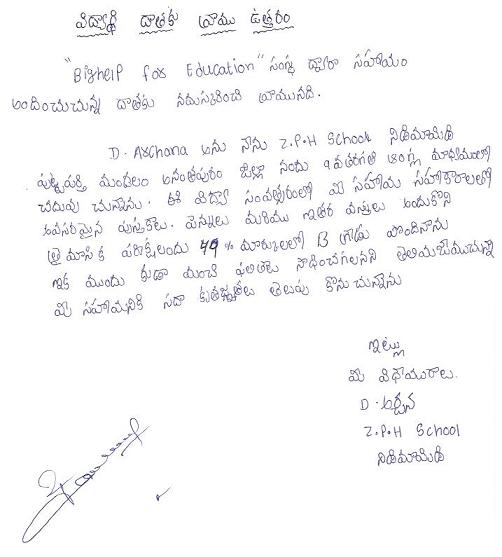 విద్యార్థి దాతకు వ్రాయు ఉత్తరం
"Bighelp for Education" సంస్థ ద్వారా సహాయం
అందించుచున్న దాతకు నమస్కరించి వ్రాయునది.
D. Archana అను నేను Z.P.H School నిడిమామిడి
పుట్టపర్తి మండలం అనంతపురం జిల్లా నందు 9వతరగతి తెలుగు మాధ్యమంలో
చదువు చున్నాను. ఈ విద్యా సంవత్సరంలో మీ సహాయ సహకారాలతో
అవసరమైన పుస్తకాలు. పెన్నులు మరియు ఇతర వస్తువులు అందుకొని
త్రైమాసిక పరీక్షలందు 49% మార్కులతో B గ్రేడు పొందినాను
ఇక ముందు కూడా మంచి ఫలితాలు సాధించగలనని తెలియజేయుచున్నా
మీ సహాయానికి సదా కృతజ్ఞతలు తెలుపు కొనుచున్నాను
ఇట్లు
మీ విధేయురాలు.
D. అర్చన
Z.P.H School
నిడిమామిడి